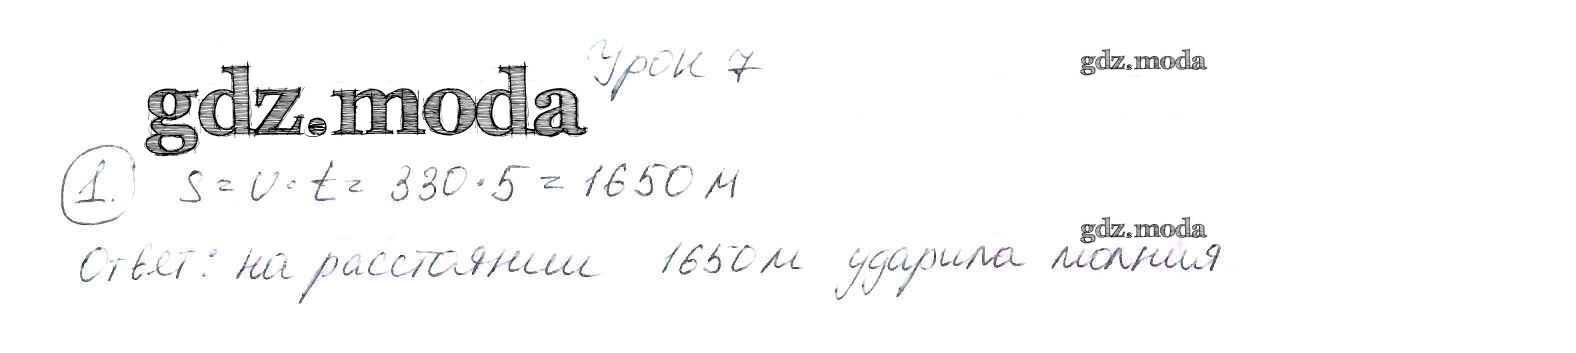 Урок 7
gdz.moda
gdz.moda
1. S = v · t = 330 · 5 = 1650 м
gdz.moda
Ответ: на расстоянии 1650 м ударила молния